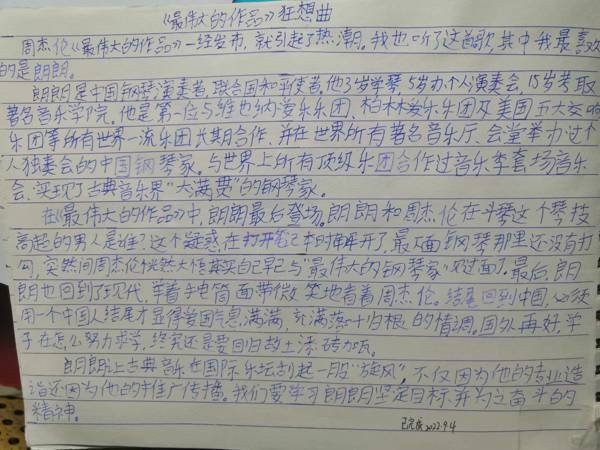 《最伟大的作品》狂想曲
周杰伦《最伟大的作品》一经发布,就引起了热潮。我也听了这首歌,其中我最喜欢
的是朗朗。
朗朗是中国钢琴演奏者,联合国和平使者,他3岁学琴,5岁办个人演奏会,15岁考取
著名音乐学院。他是第一位与维也纳爱乐乐团、柏林爱乐乐团及美国五大交响
乐团等所有世界一流乐团长期合作,并在世界所有著名音乐厅、会堂举办过个
人独奏会的中国钢琴家。与世界上所有顶级乐团合作过音乐季套场音乐
会,实现了古典音乐界“大满贯”的钢琴家。
在《最伟大的作品》中,朗朗最后登场。朗朗和周杰伦在斗琴这个琴技
高超的男人是谁?这个疑惑在打开笔记本时解开了,最后面钢琴那里还没有打
勾,突然间周杰伦恍然大悟其实自己早已与“最伟大的钢琴家”见过面了。最后,朗
朗也回到了现代,举着手电筒面带微笑地看着周杰伦。结尾回到中国,必须
用一个中国人结尾才显得爱国气息满满,充满落叶归根的情调。国外再好,学
子在怎么努力求学,终究还是要回归故土添砖加瓦。
朗朗让古典音乐在国际乐坛刮起一股“旋风”,不仅因为他的专业造
诣还因为他的推广传播。我们要学习朗朗坚定目标,并为之奋斗的
精神。
已完成2022.9.4